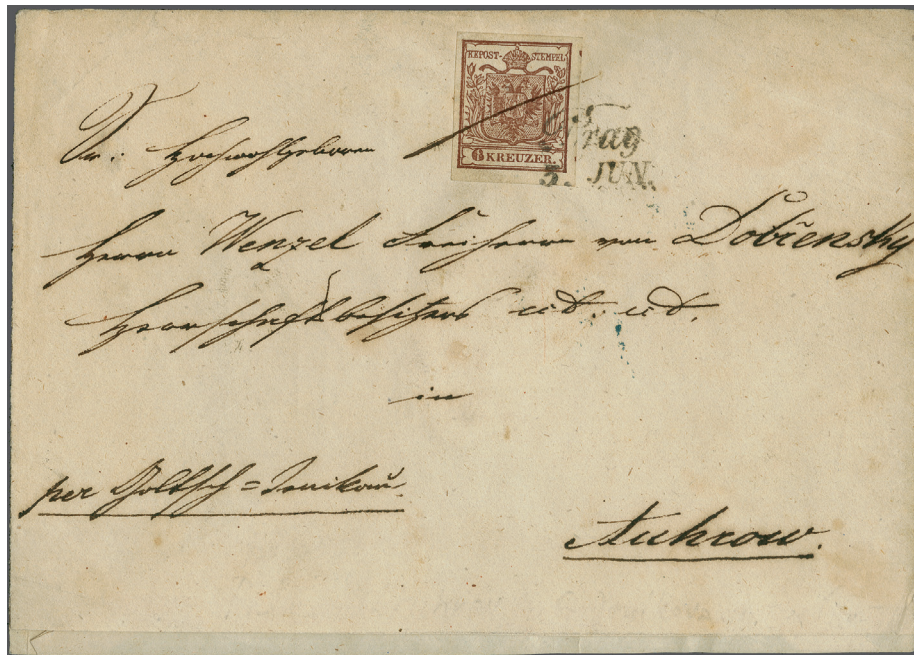 KKPOST-STEMPEL
6 KREUZER.
Prag
5. JUN.
Sr: Hochwohlgeboren
Herrn Wenzel Freiherr von Dobřensky
Herrschaftsbesitzers
in
per Goltsch=Jenikau
Auhrow.